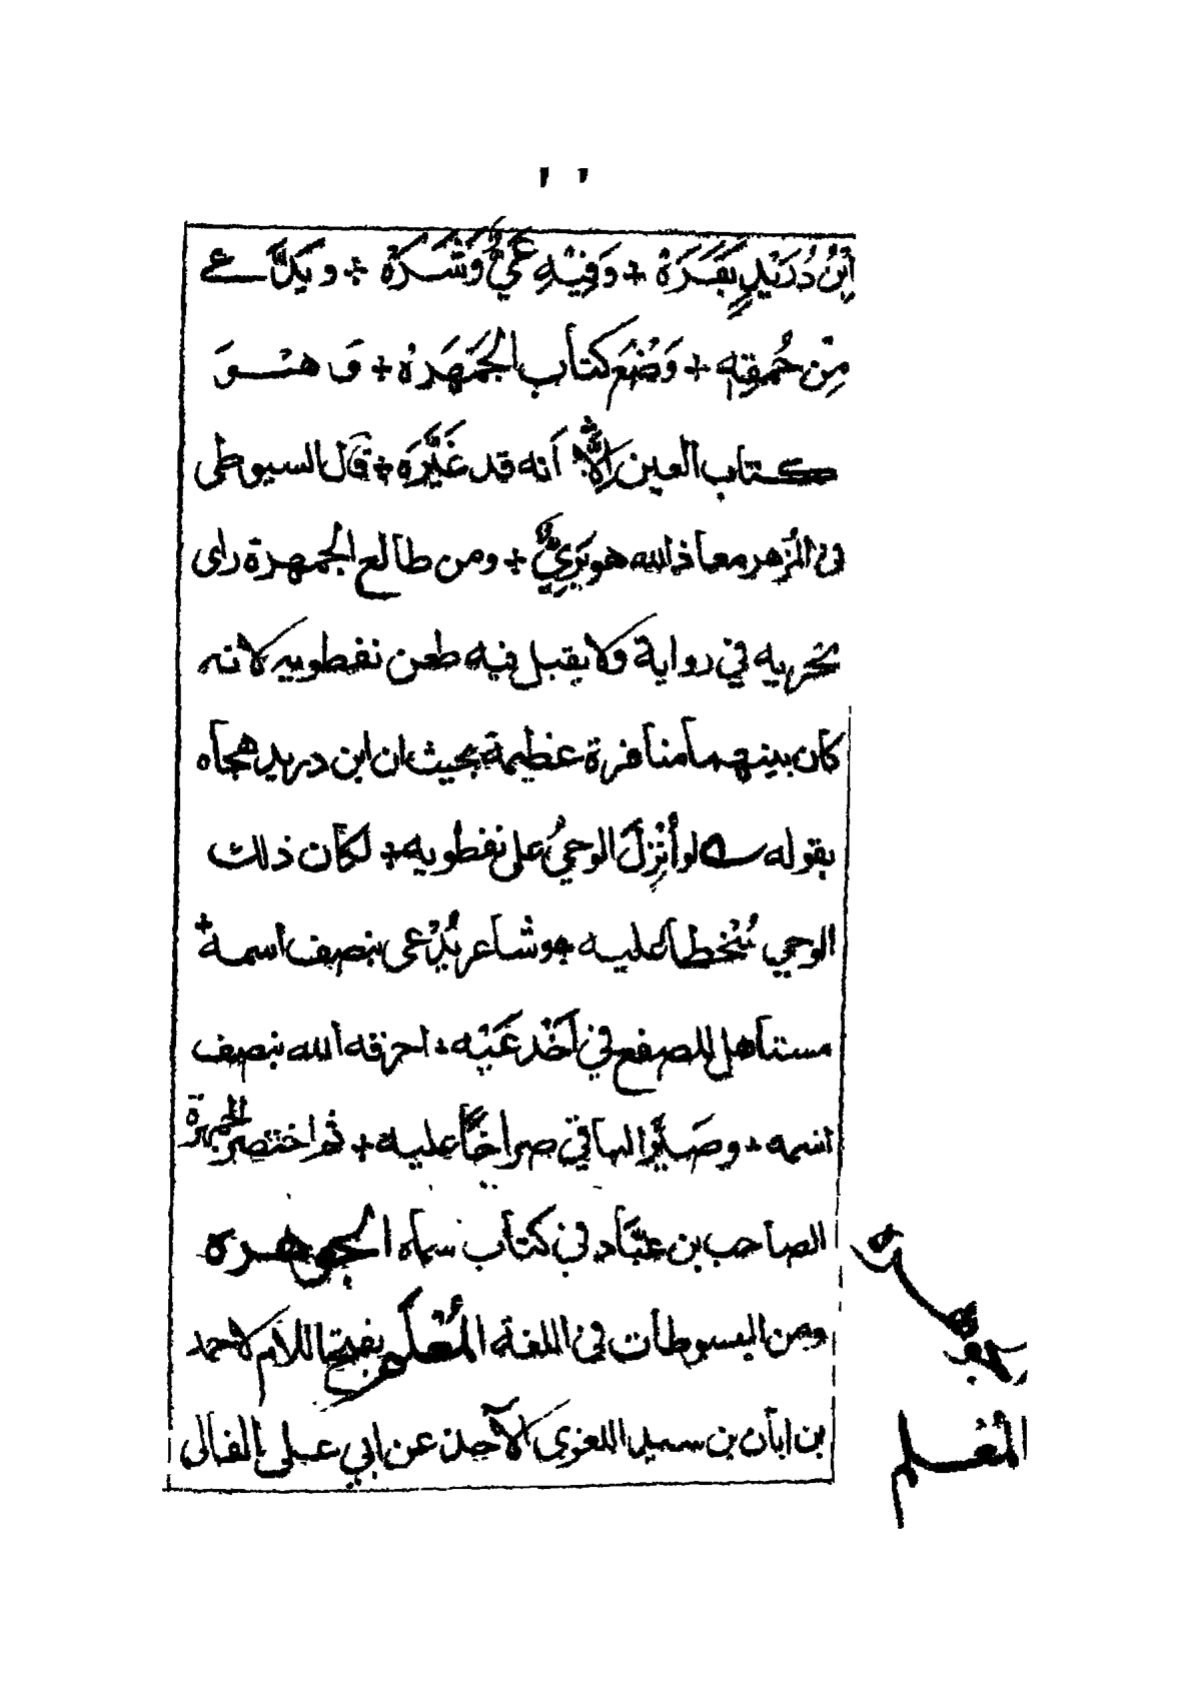 ابْنُ دُرَيْدٍ بَقَرَهْ + وَفِيْهِ عَيٌّ وَشَرَهْ + ويَدَّعي
مِنْ حُمقِه + وَضْعَ كتاب الجَمْهَرَهْ + وَ هْـوَ
كتاب العين اِلَّا اَنه قد غَيَّرَه + قال السيوطى
فى المُزهر معاذ الله هو بَرِيٌّ + ومن طالع الجمهرة راى
تحريه في رواية ولا يقبل فيه طعن نفطويه لانه
كان بينهما منافرة عظيمة بحيث ان ابن دريد هجاه
بقوله لو أُنْزِلَ الوحيُ على نفطويه + لكان ذلك
الوحي سُخطا عليه + وشاعر يُدْعى بنصف اسمه +
مستاهل للصفع في اَخْدعَيْه + احرقه الله بنصف
اسمه + وصَيَّر الباقي صراخًا عليه + ثم اختصر الجمهرة
الصاحب بن عَبَّاد في كتاب سماه الجوهرة
ومن المبسوطات في اللغة المُعْلَم بفتح اللام لاحمد
بن ابان بن سيد اللغوى الآخذ عن ابي على القالى
الجوهرة
المُعْلم